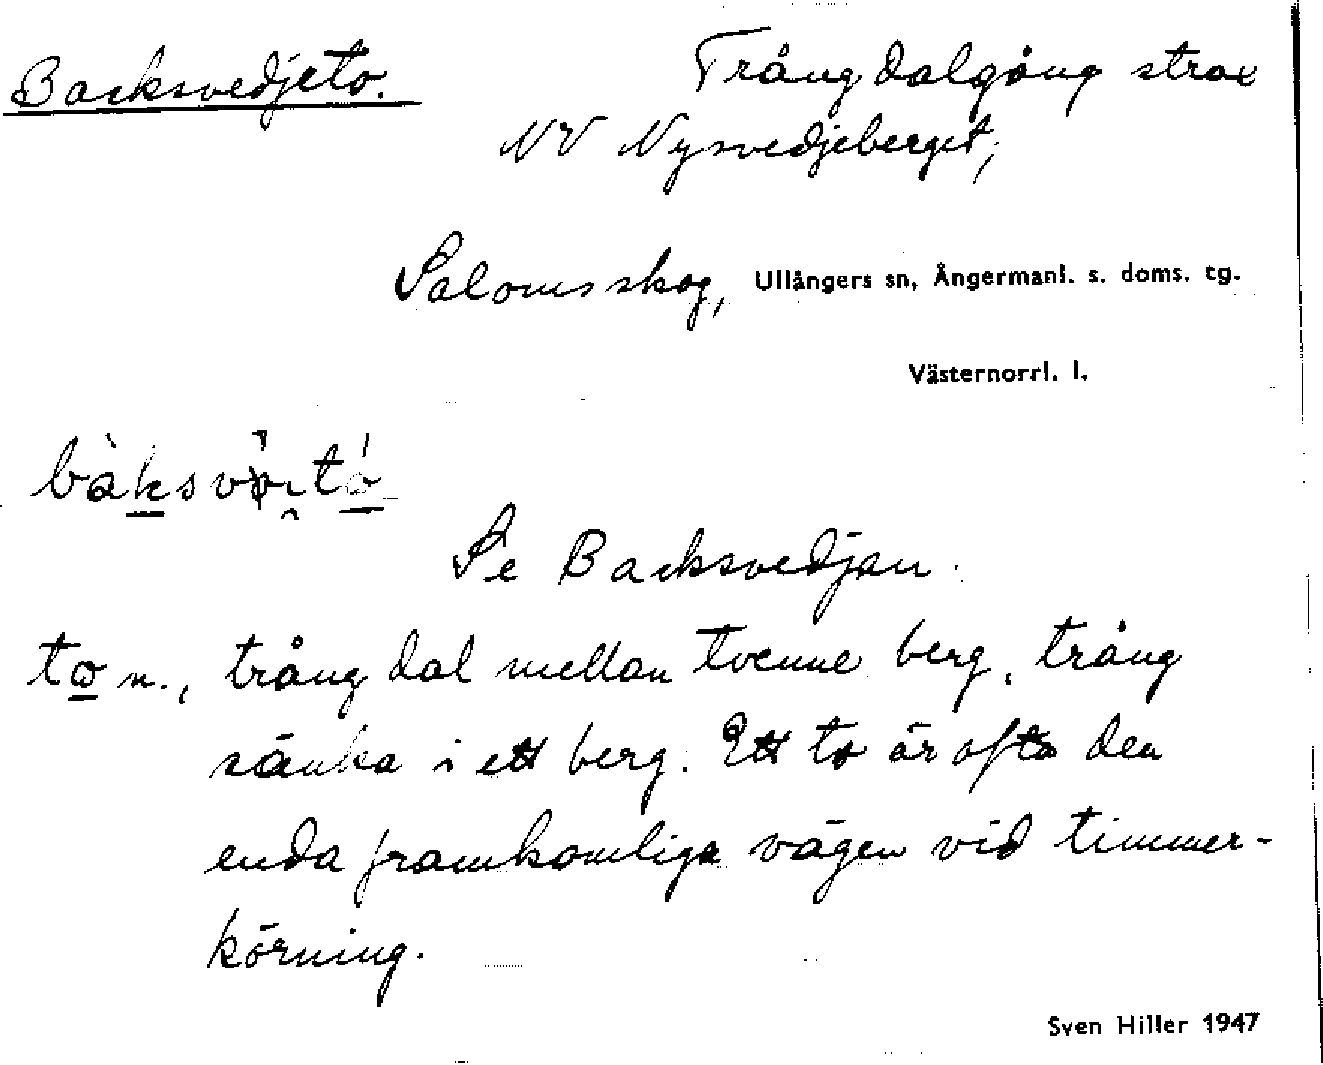 Backsvedjeto. Trång dalgång strax
NV Nysvedjeberget,
Salomsskog, Ullångers sn, Ångermanl. s. doms. tg.
Västernorrl. l.
Se Backsvedjan.
to n., trång dal mellan tvenne berg, trång
sänka i ett berg. Ett to är ofta den
enda framkomliga vägen vid timmer-
körning.
Sven Hiller 1947